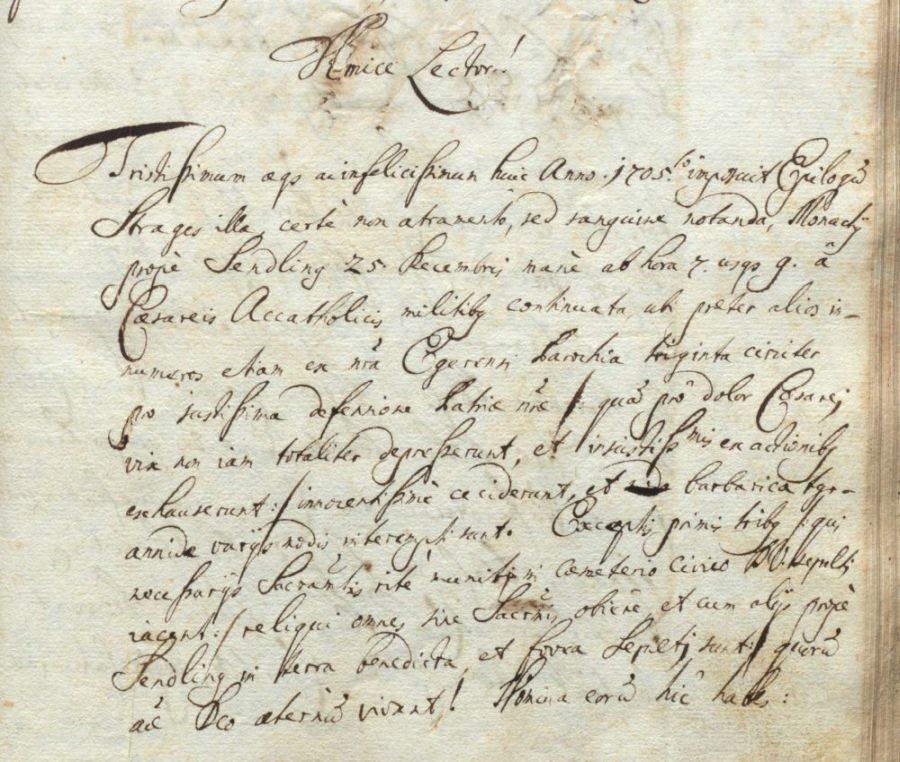 Amice Lector!
Tristissimum aeq3 ac infelicissimum huic Anno 1705to imposuit Epilogū
Strages illa, certè non atramento, sed sanguine notanda, Monachÿ
propè Sendling 25. Decembris manè ab hora 7. usq3 9. â
Caesareis Accatholicis militib9 continuata, ubi preter alios in-
numeros etiam ex nrā Egerensi Parochia triginta circiter
pro iustissima defensione Patriae nrāe /: quā prô dolor Caesarej
vix non iam totaliter depresserunt, et iniustissmis exactionib9
exhauserunt :/ innocentissimè ceciderunt, et barbarica tyr-
annide varÿs modis interempti sunt. Exceptis primis trib9 /: qui
necessarÿs Sacramtis ritè muniti in caemeterio Civico B.V. sepulti
iacent :/ reliqui omnes sine Sacrmis obiêre, et cum alÿs propè
Sendling in terra benedicta, et fovea sepulti sunt: quorū
aīae Deo aeternū vivant! Nomina eorū hîc habes: